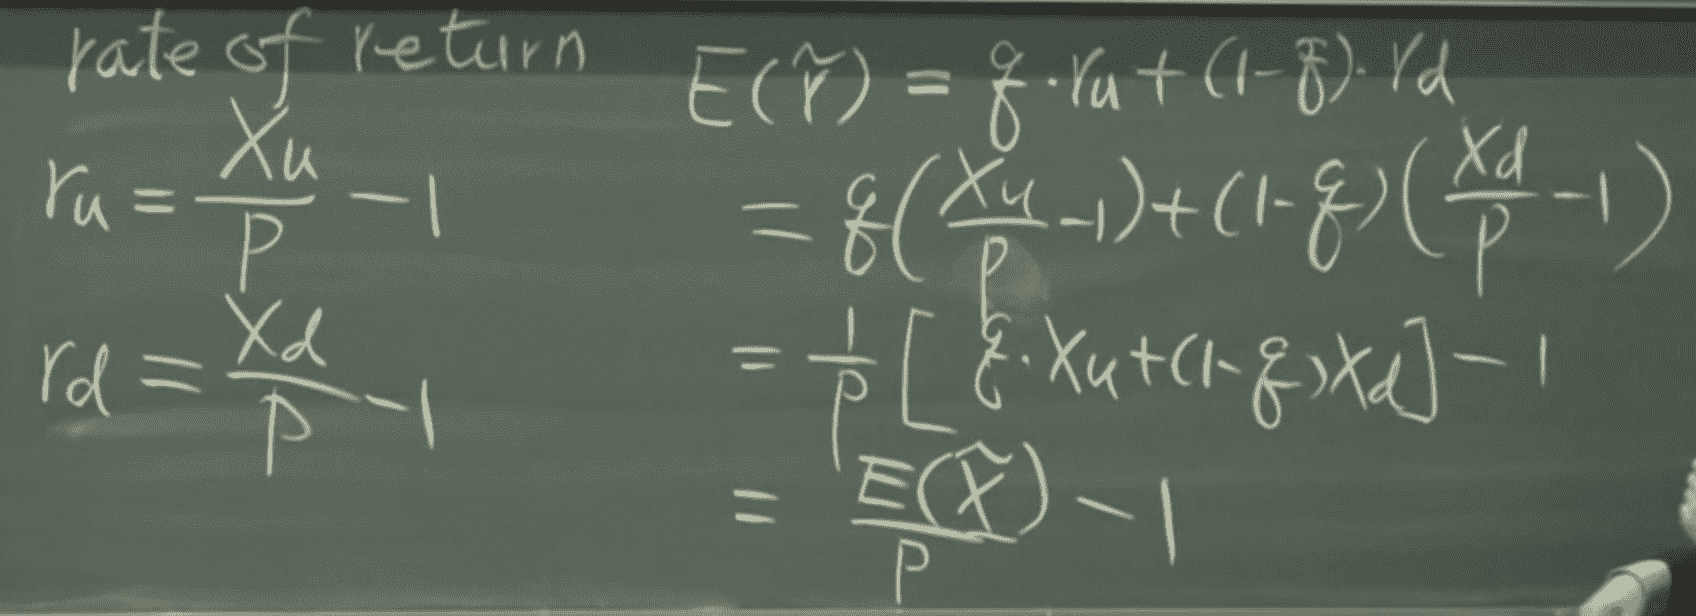 rate of return
r_u = X_u / P - 1
r_d = X_d / P - 1
E(r̃) = q · r_u + (1 - q) · r_d
= q (X_u / P - 1) + (1 - q) (X_d / P - 1)
= 1 / P [q · X_u + (1 - q) X_d] - 1
= E(X̃) / P - 1